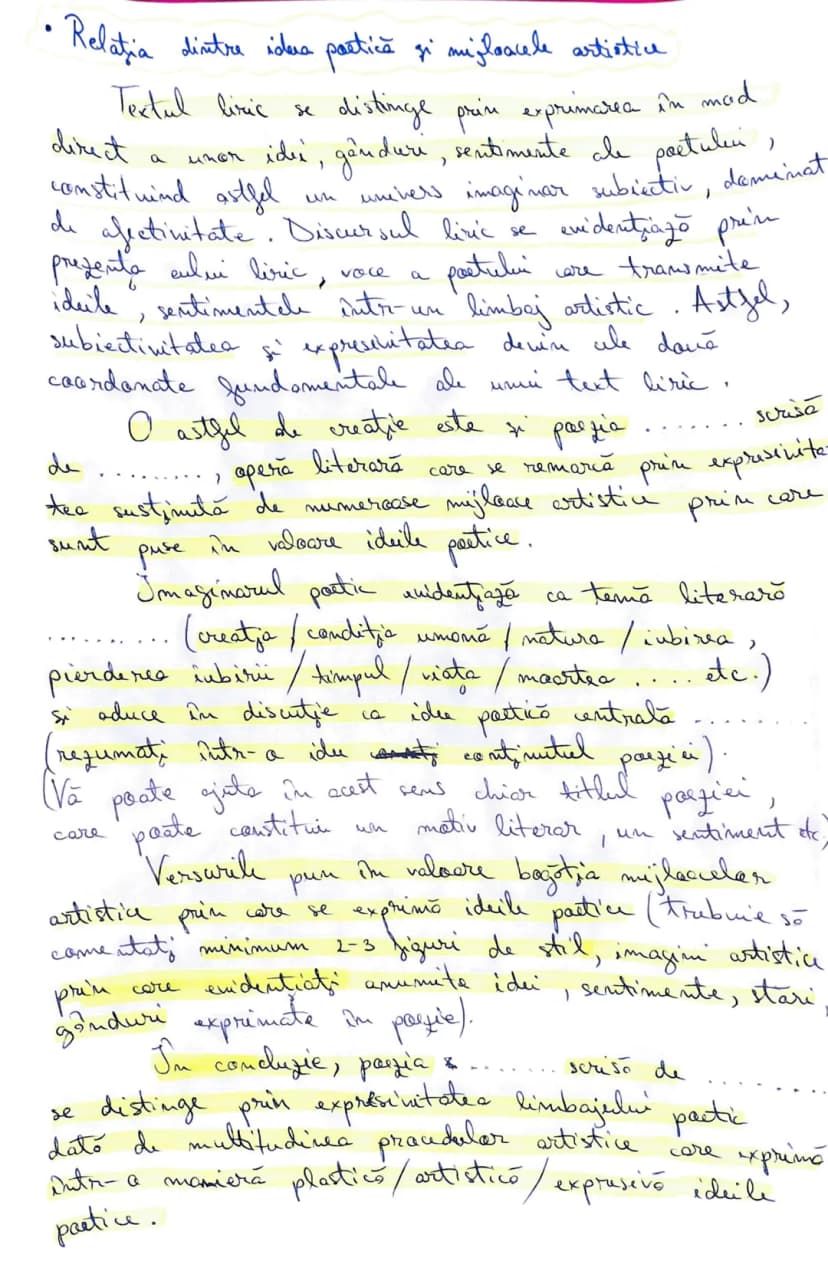 • Relația dintre ideea poetică și mijloacele artistice
Textul liric se distinge prin exprimarea în mod
direct a unor idei, gânduri, sentimente ale poetului,
constituind astfel un univers imaginar subiectiv, dominat
de afectivitate. Discursul liric se evidențiază prin
prezența eului liric, voce a poetului care transmite
ideile, sentimentele într-un limbaj artistic. Astfel,
subiectivitatea și expresivitatea devin cele două
coordonate fundamentale ale unui text liric.
O astfel de creație este și poezia ....... scrisă
de ........., operă literară care se remarcă prin expresivita-
tea susținută de numeroase mijloace artistice prin care
sunt puse în valoare ideile poetice.
Imaginarul poetic evidențiază ca temă literară
......... (creația / condiția umană / natura / iubirea,
pierderea iubirii / timpul / viața / moartea .... etc.)
și aduce în discuție ca idee poetică centrală .......
(rezumați într-o idee conținutul poeziei).
(Vă poate ajuta în acest sens chiar titlul poeziei,
care poate constitui un motiv literar, un sentiment etc)
Versurile pun în valoare bogăția mijloacelor
artistice prin care se exprimă ideile poetice (trebuie să
comentați minimum 2-3 figuri de stil, imagini artistice
prin care evidențiați anumite idei, sentimente, stări,
gânduri exprimate în poezie).
În concluzie, poezia ....... scrisă de .......
se distinge prin expresivitatea limbajului poetic
dată de multitudinea procedelor artistice care exprimă
într-o manieră plastică/artistică/expresivă ideile
poetice.